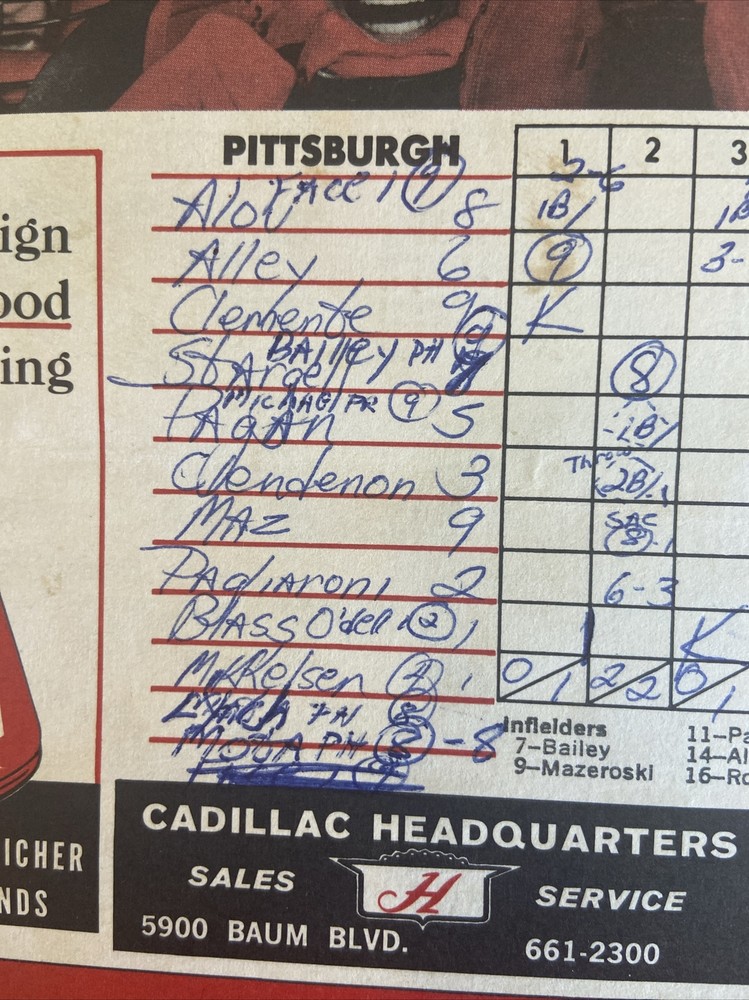 ign
ood
ing
ICHER
NDS
PITTSBURGH 1 2 3
2-6
FACE 1 9
Alou 8 1B
Alley 6 9 3-
Clemente 9 K
BAILEY PH 9
Stargell 8
MICHAEL PR 9
PAGAN 5 1B
Throw
Clendenon 3 2B
MAZ 9 SAC 8
PAgliAroni 2 6-3
BlAss O'dell 2 1 K
MiKKelsen 7 1 0/1 2/2 0/1
Lynch PH 8
MOTA PH 8 -8
Infielders
7–Bailey
9–Mazeroski
11–Pa
14–Al
16–Ro
CADILLAC HEADQUARTERS
SALES H SERVICE
5900 BAUM BLVD. 661-2300